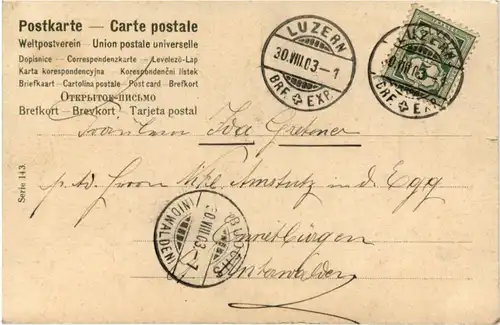 Postkarte — Carte postale
Weltpostverein — Union postale universelle
Dopisnice — Correspondenzkarte — Levelező-Lap
Karta korespondencyjna — Korespondenční lístek
Briefkaart — Cartolina postale — Post card — Brefkort
Открытое письмо
Brefkort — Brevkort — Tarjeta postal
LUZERN
30.VIII.03.—1
BRF. EXP.
LUZERN
BRF. EXP.
Fräulein Ida
p. ad. Herrn Amstutz in der Egg
Ennetbürgen
Unterwalden
Serie 143.
BUOCHS
30.VIII.03.—7
(NIDWALDEN)